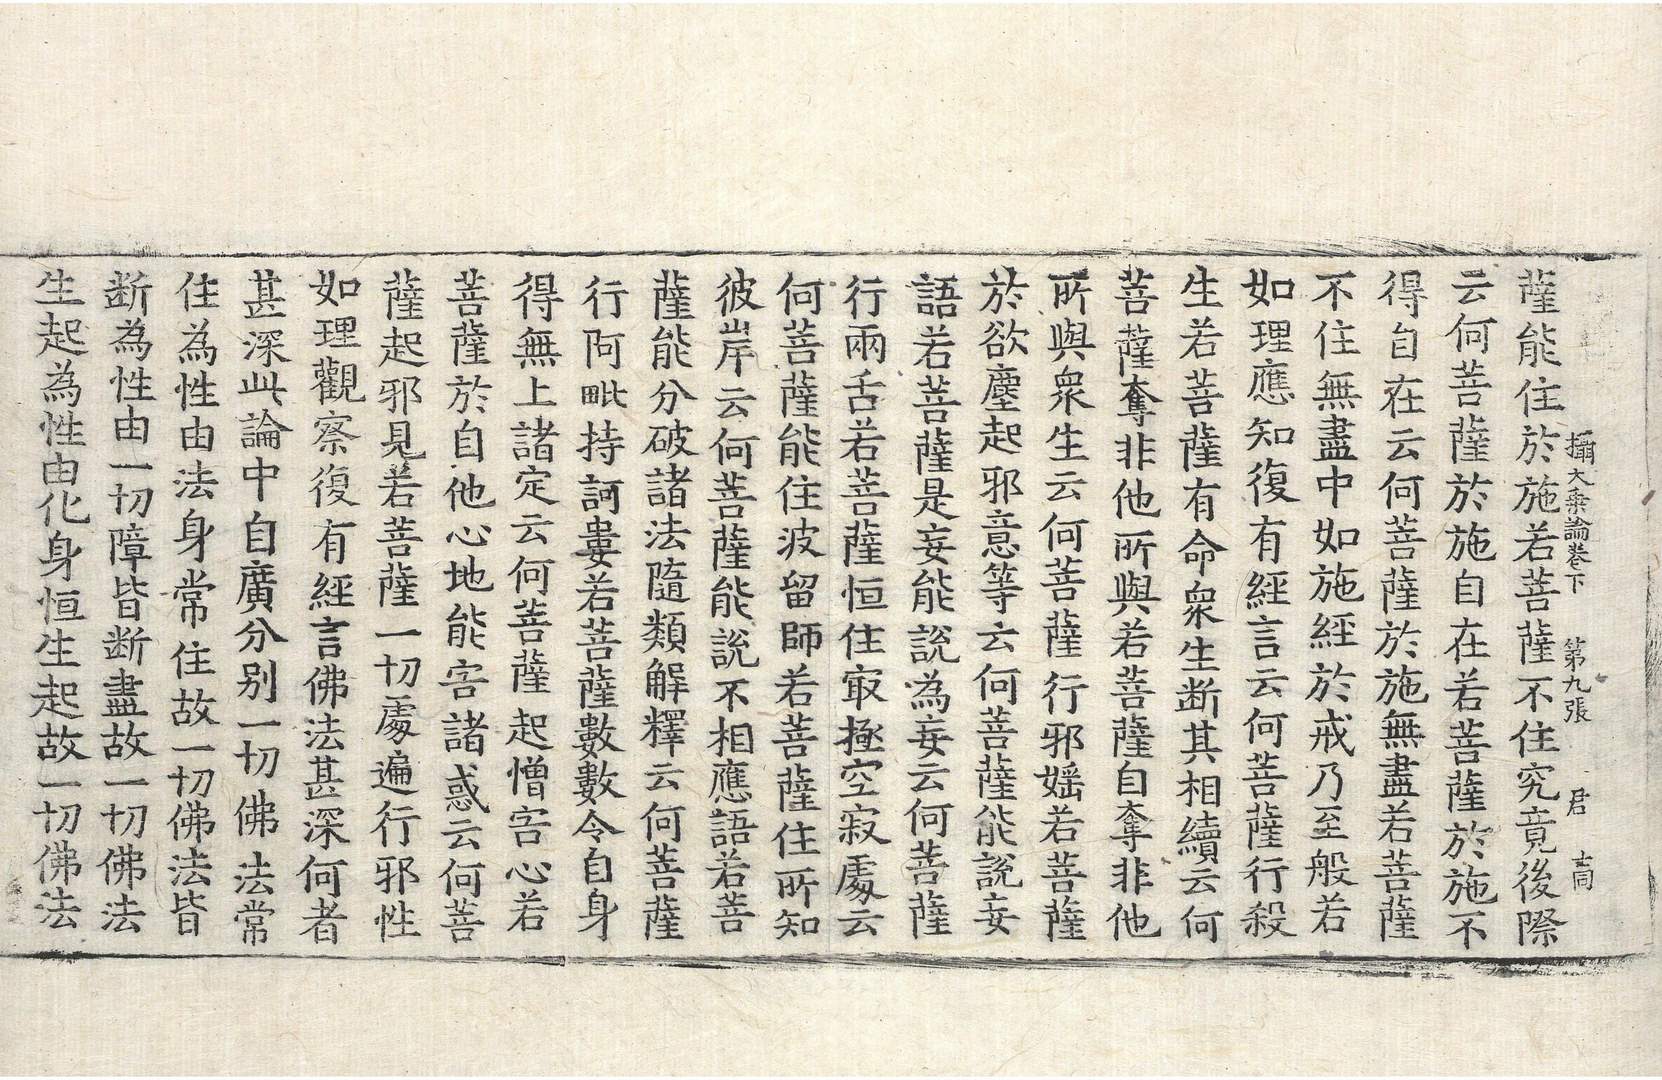 攝大乗論卷下 第九張 君 
薩能住於施若菩薩不住究竟後際
云何菩薩於施自在若菩薩於施不
得自在云何菩薩於施無盡若菩薩
不住無盡中如施經於戒乃至般若
如理應知復有經言云何菩薩行殺
生若菩薩有命衆生断其相續云何
菩薩奪非他所與若菩薩自奪非他
所與衆生云何菩薩行邪婬若菩薩
於欲塵起邪意等云何菩薩能說妄
語若菩薩是妄能說為妄云何菩薩
行兩舌若菩薩恒住冣極空寂處云
何菩薩能住波留師若菩薩住所知
彼岸云何菩薩能說不相應語若菩
薩能分破諸法隨類解釋云何菩薩
行阿毗持訶婁若菩薩數數令自身
得無上諸定云何菩薩起憎害心若
菩薩於自他心地能害諸惑云何菩
薩起邪見若菩薩一切處遍行邪性
如理觀察復有經言佛法甚深何者
甚深此論中自廣分別一切佛法常
住為性由法身常住故一切佛法皆
断為性由一切障皆断盡故一切佛法
生起為性由化身恒生起故一切佛法